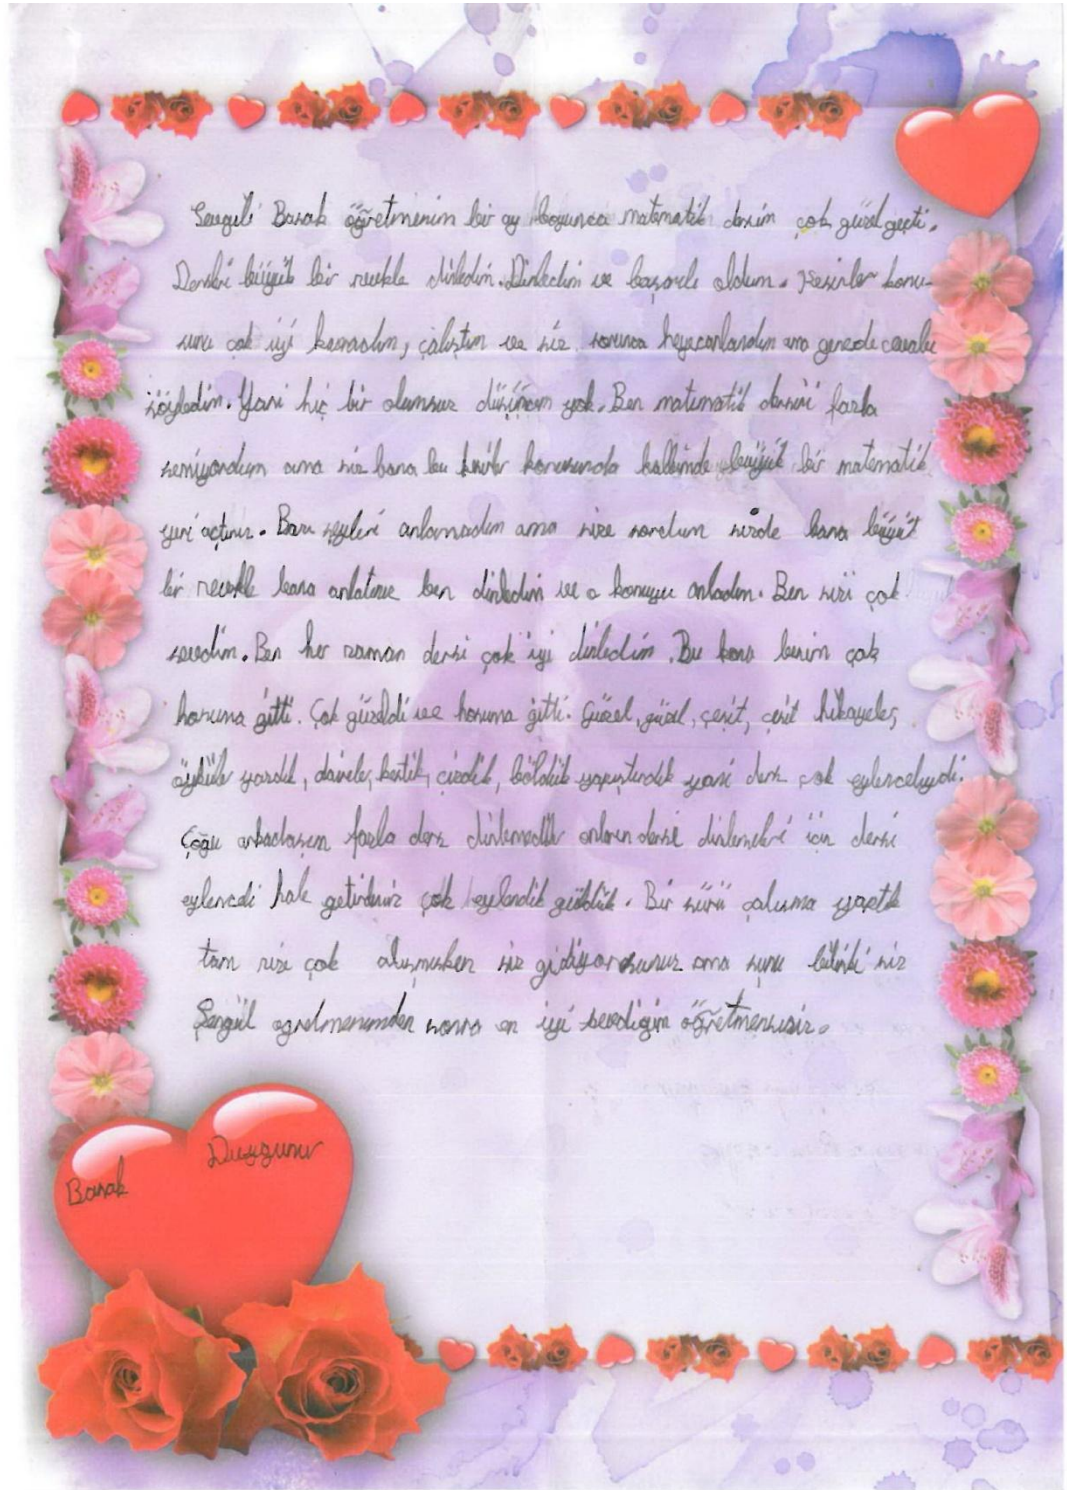 Sevgili Başak öğretmenim bir ay boyunca matematik dersim çok güzel geçti.
Dersleri büyük bir zevkle dinledim. Dinledim ve başarılı oldum. Kesirler konu-
sunu çok iyi kavradım, çalıştım ve siz sorunca heyecanlandım ama genede cevabı
söyledim. Yani hiç bir olumsuz düşüncem yok. Ben matematik dersini fazla
semiyordum ama siz bana bu kesirler konusunda kalbimde büyük bir matematik
yeri açtınız. Bazı şeyleri anlamadım ama size sordum sizde bana büyük
bir zevkle bana anlatınız ben dinledim ve o konuyu anladım. Ben sizi çok
sevdim. Ben her zaman dersi çok iyi dinledim. Bu konu benim çok
hoşuma gitti. Çok güzeldi ve hoşuma gitti. Güzel, güzel, çeşit, çeşit hikayeler,
öyküler yazdık, daireler, kestik, çizdik, böldük yapıştırdık yani ders çok eylenceliydi.
Çoğu arkadaşım fazla ders dinlemediler onların dersi dinlemeleri için dersi
eylenceli hale getirdiniz çok eylendik güldük. Bir sürü çalışma yaptık
tam size çok alışmışken siz gidiyorsunuz ama şunu bilinki siz
Şengül ogretmenimden sonra en iyi sevdiğim öğretmensisiz.
Başak